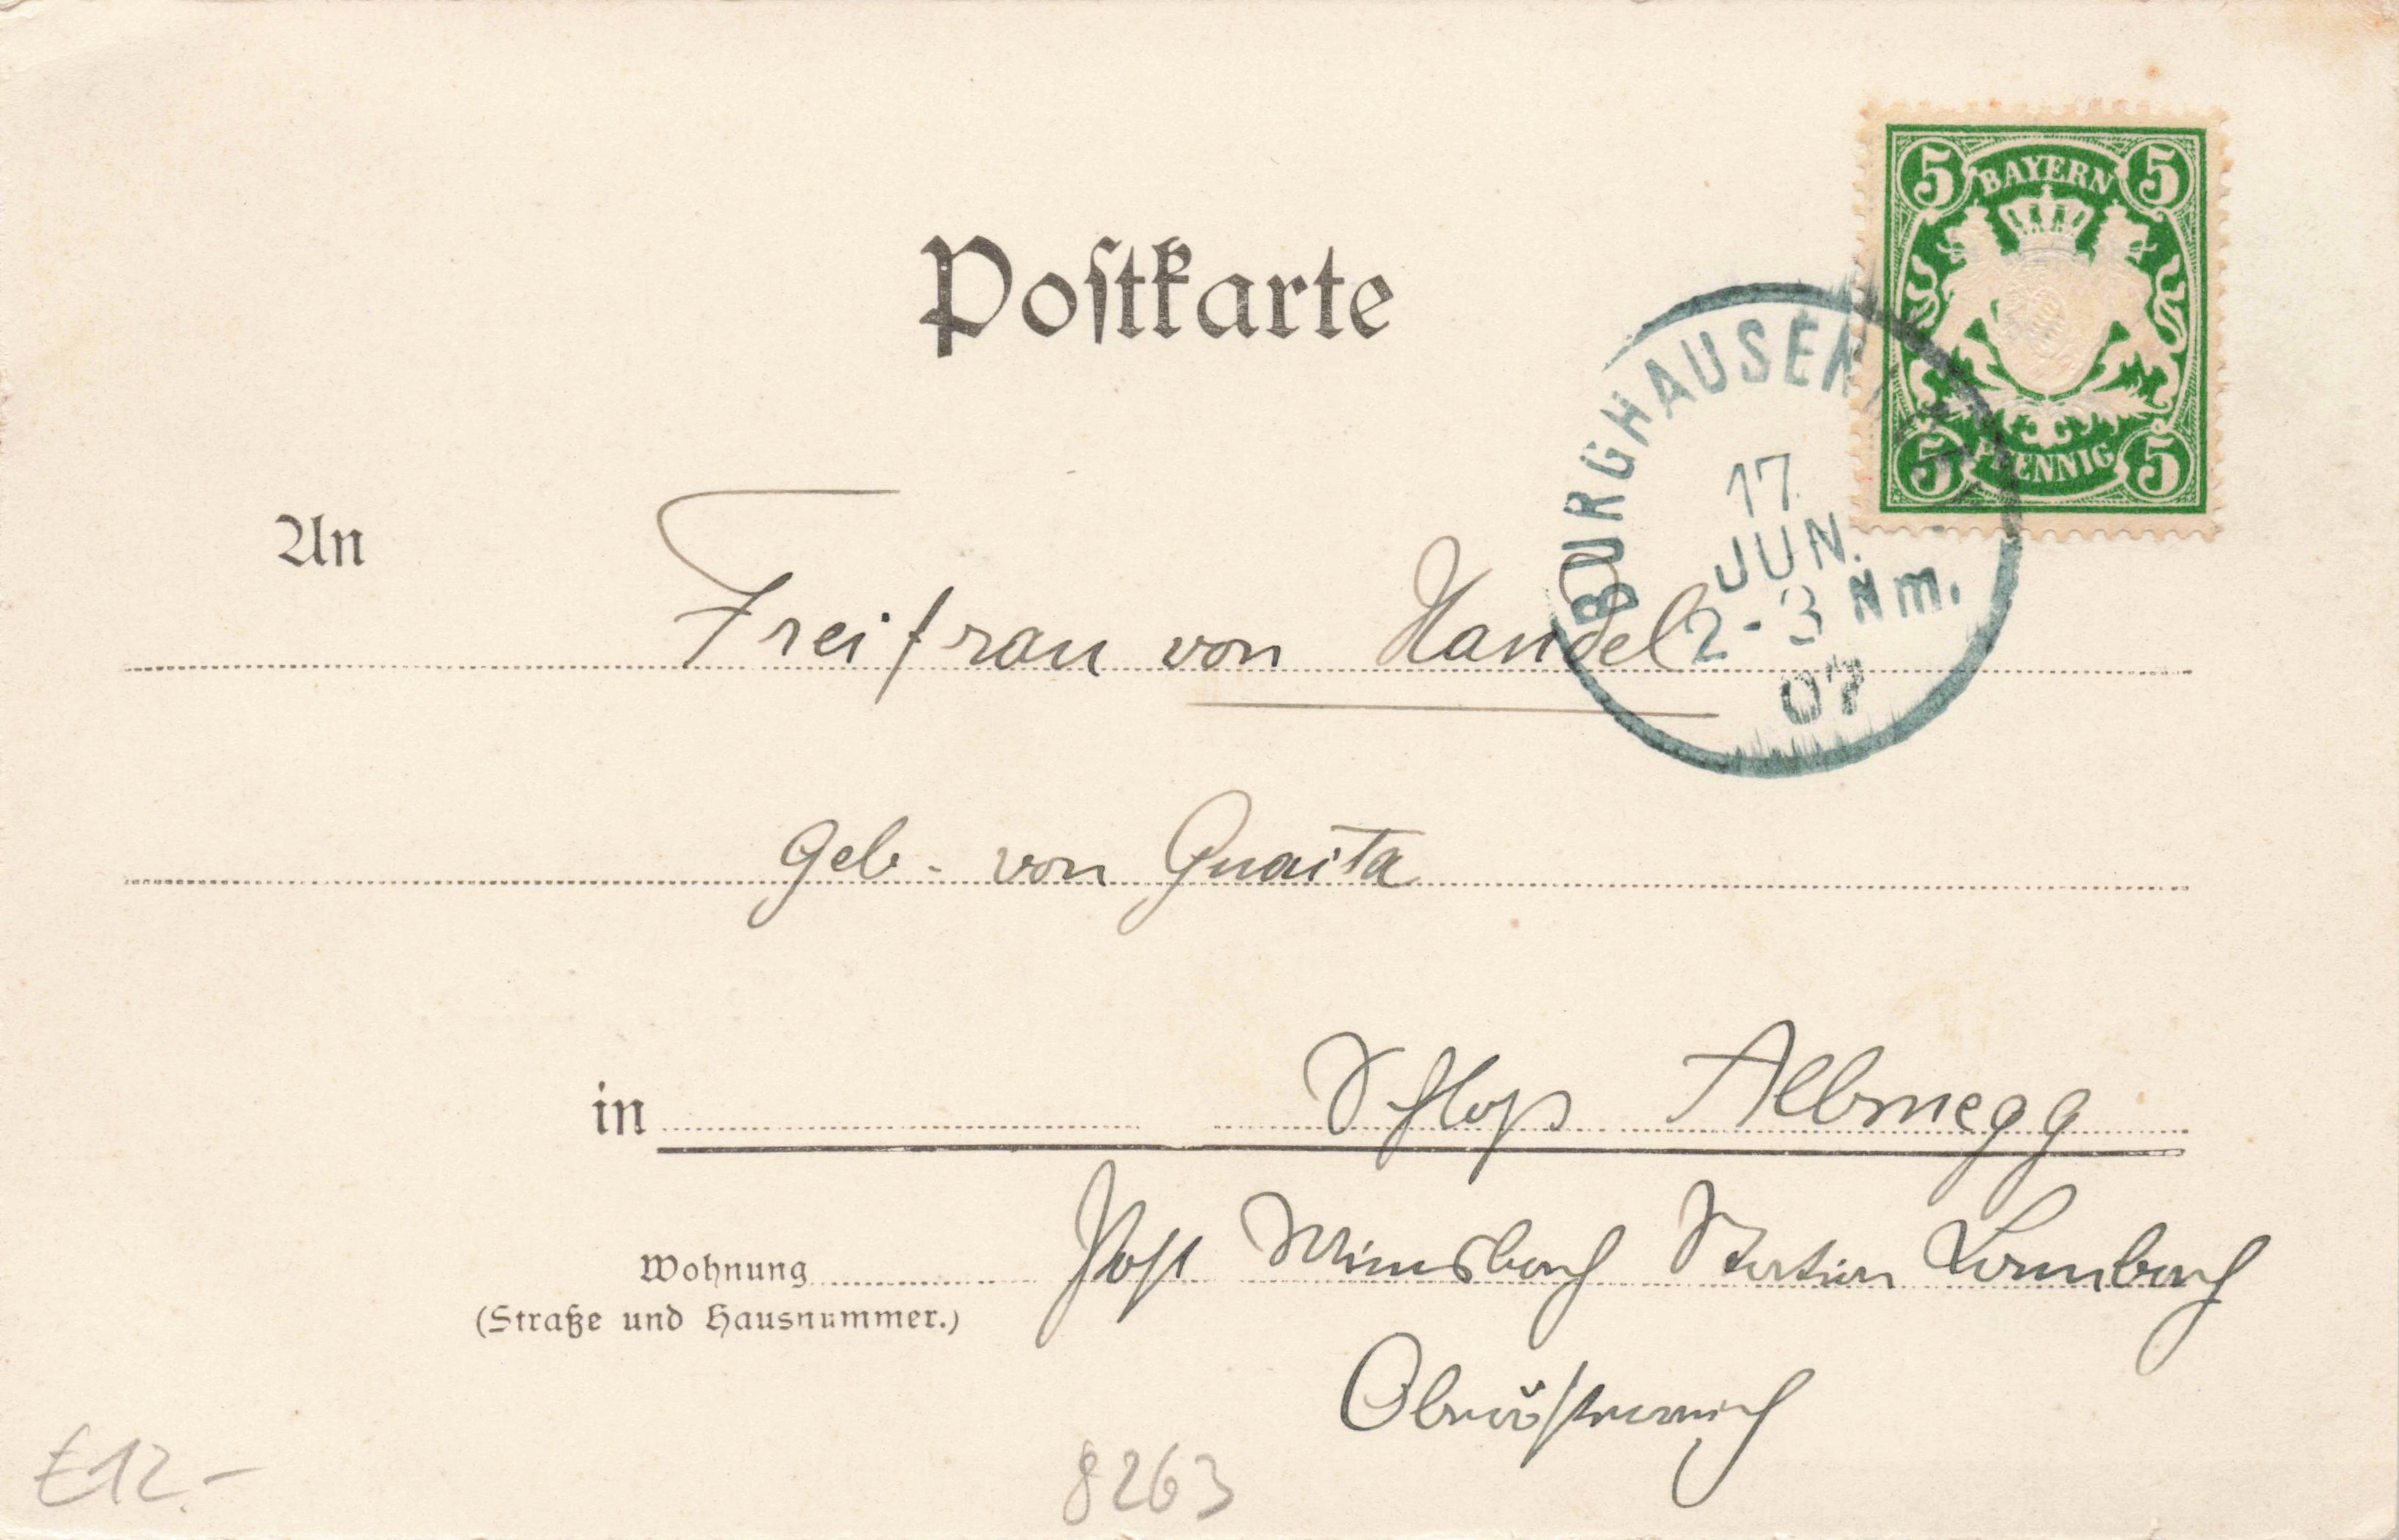 Postkarte
5 BAYERN 5
5 PFENNIG 5
BURGHAUSEN
17
JUN.
2-3 Nm.
07
An Freifrau von Handel
geb. von Guaita
in Schloß Albmegg
Wohnung Post Wimsbach Station Lambach
(Straße und Hausnummer.)
Oberösterreich
€12.-
8263